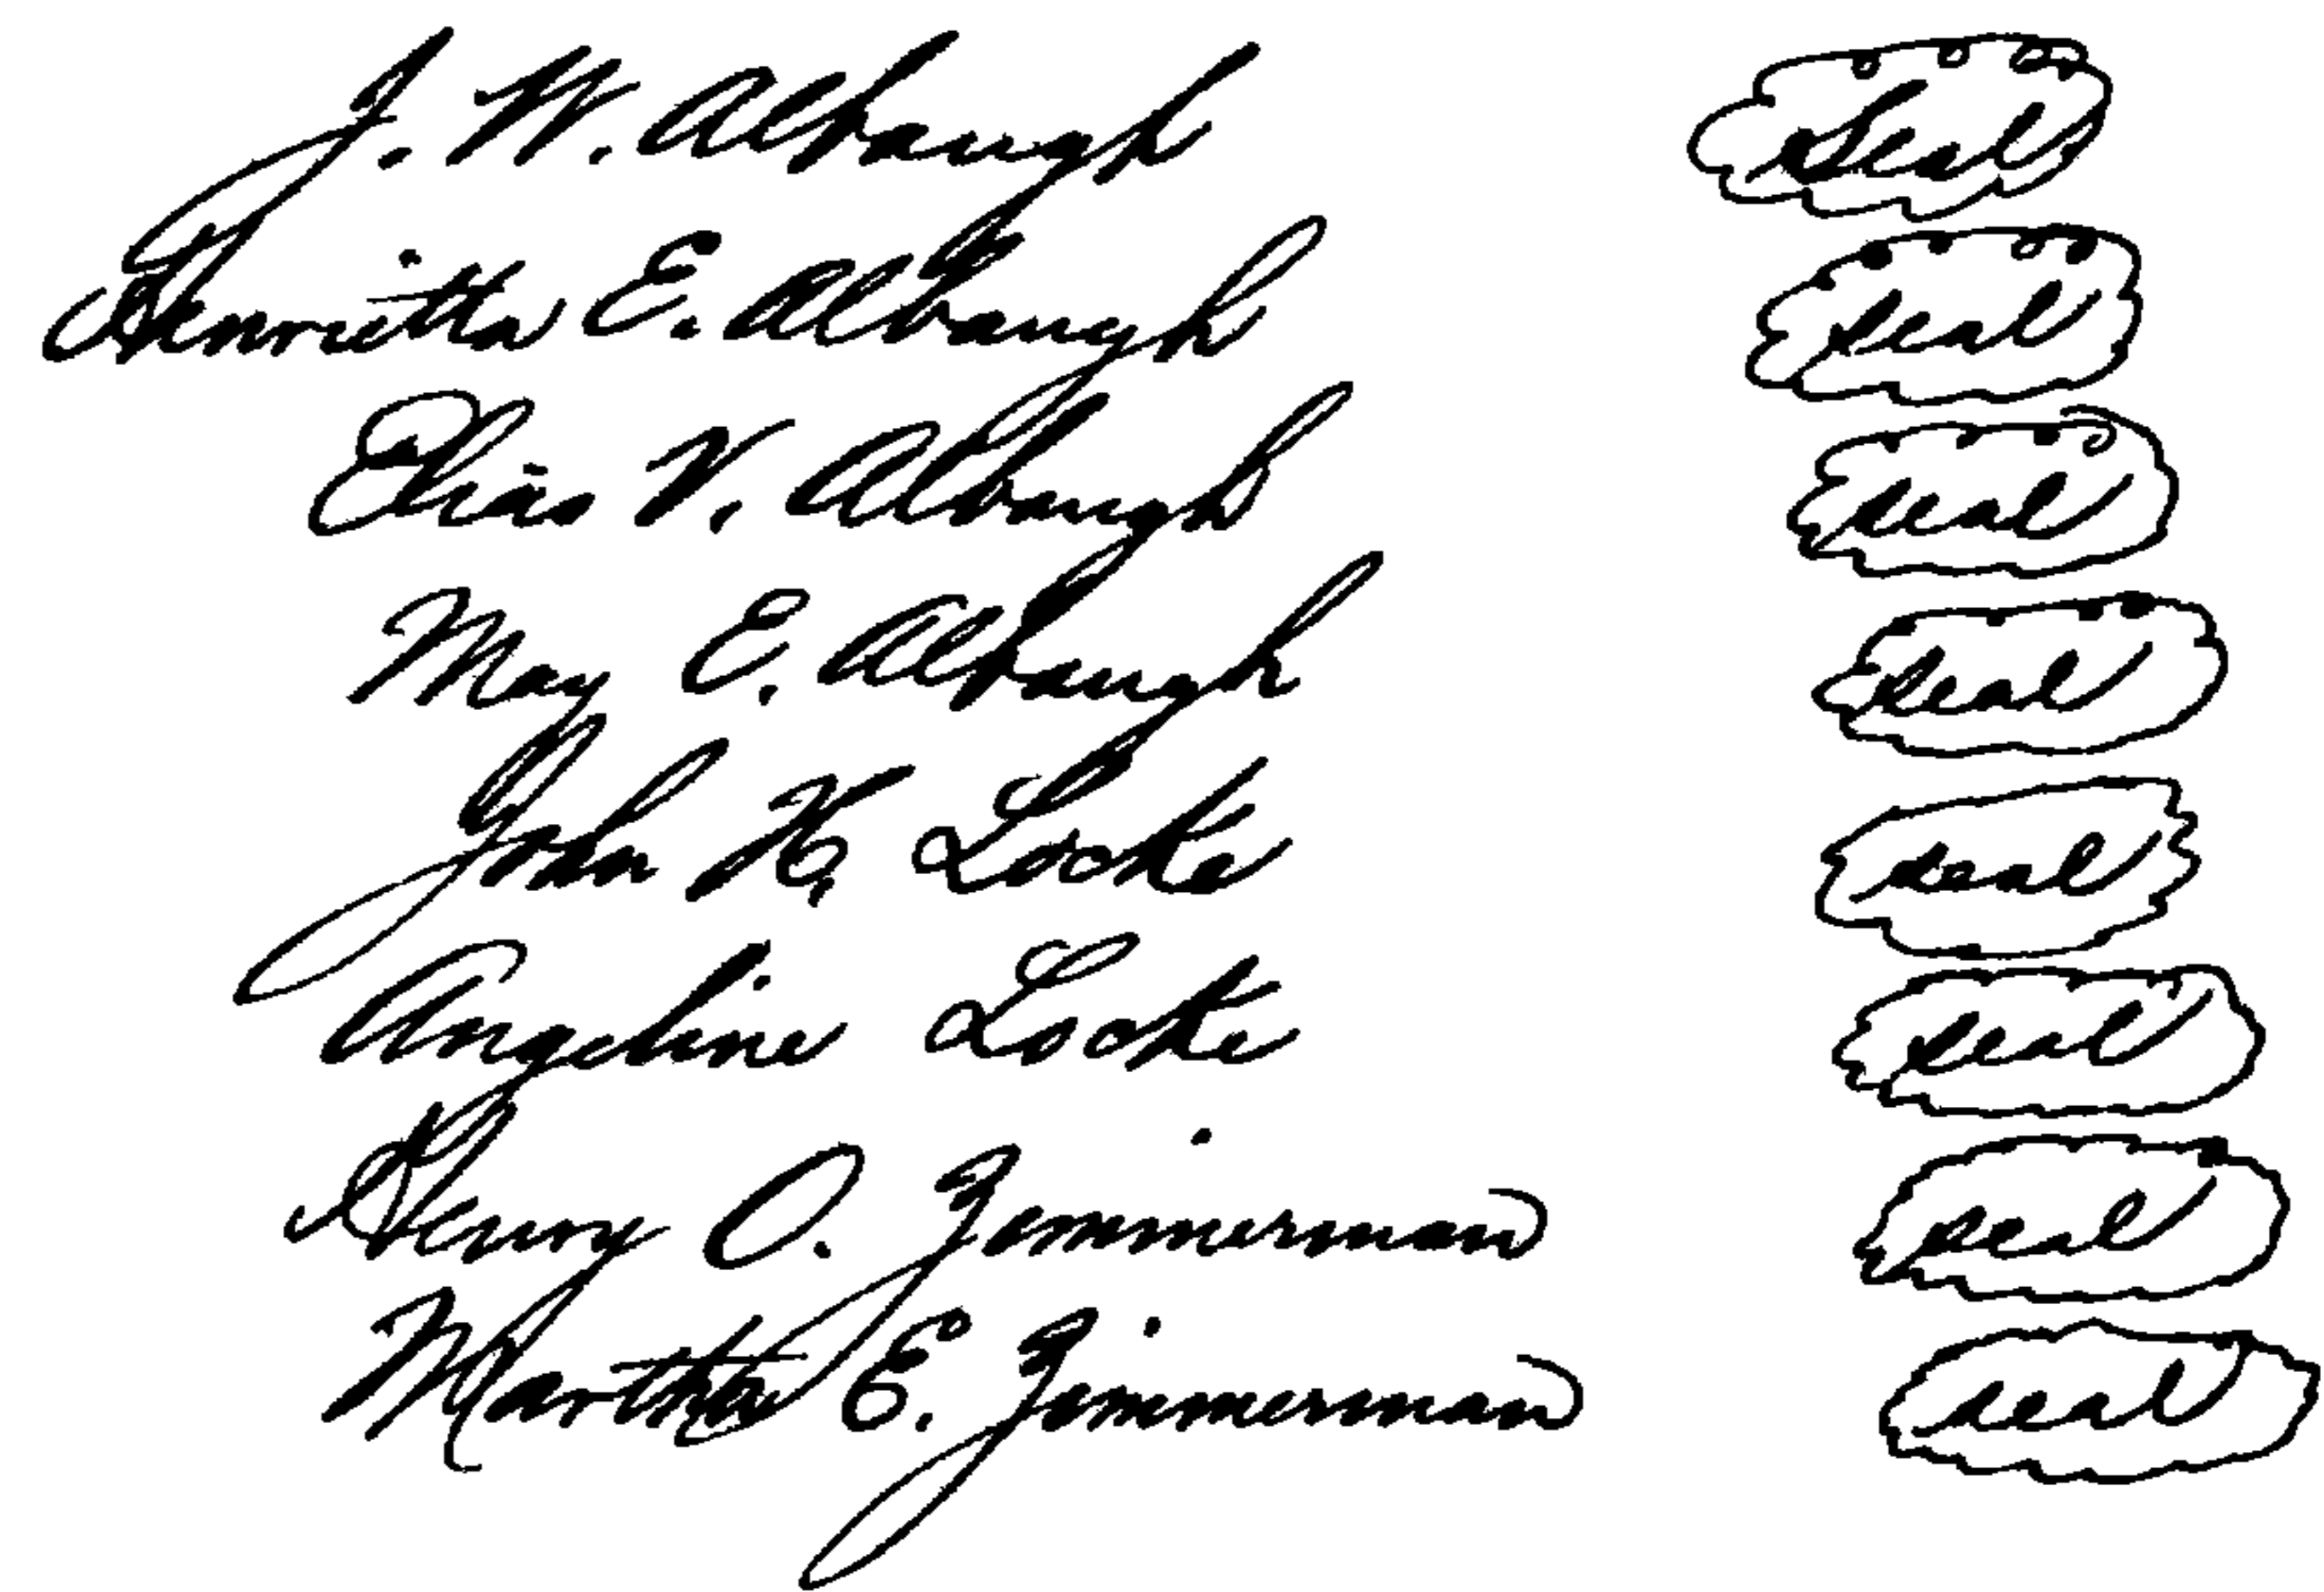 J. W. Albaugh Seal
Henrietta E. Albaugh Seal
Elias V. Albaugh Seal
May E. Albaugh Seal
John K. Looke Seal
Angeline Looke Seal
Henry O. Zimmerman Seal
Martha E. Zimmerman Seal